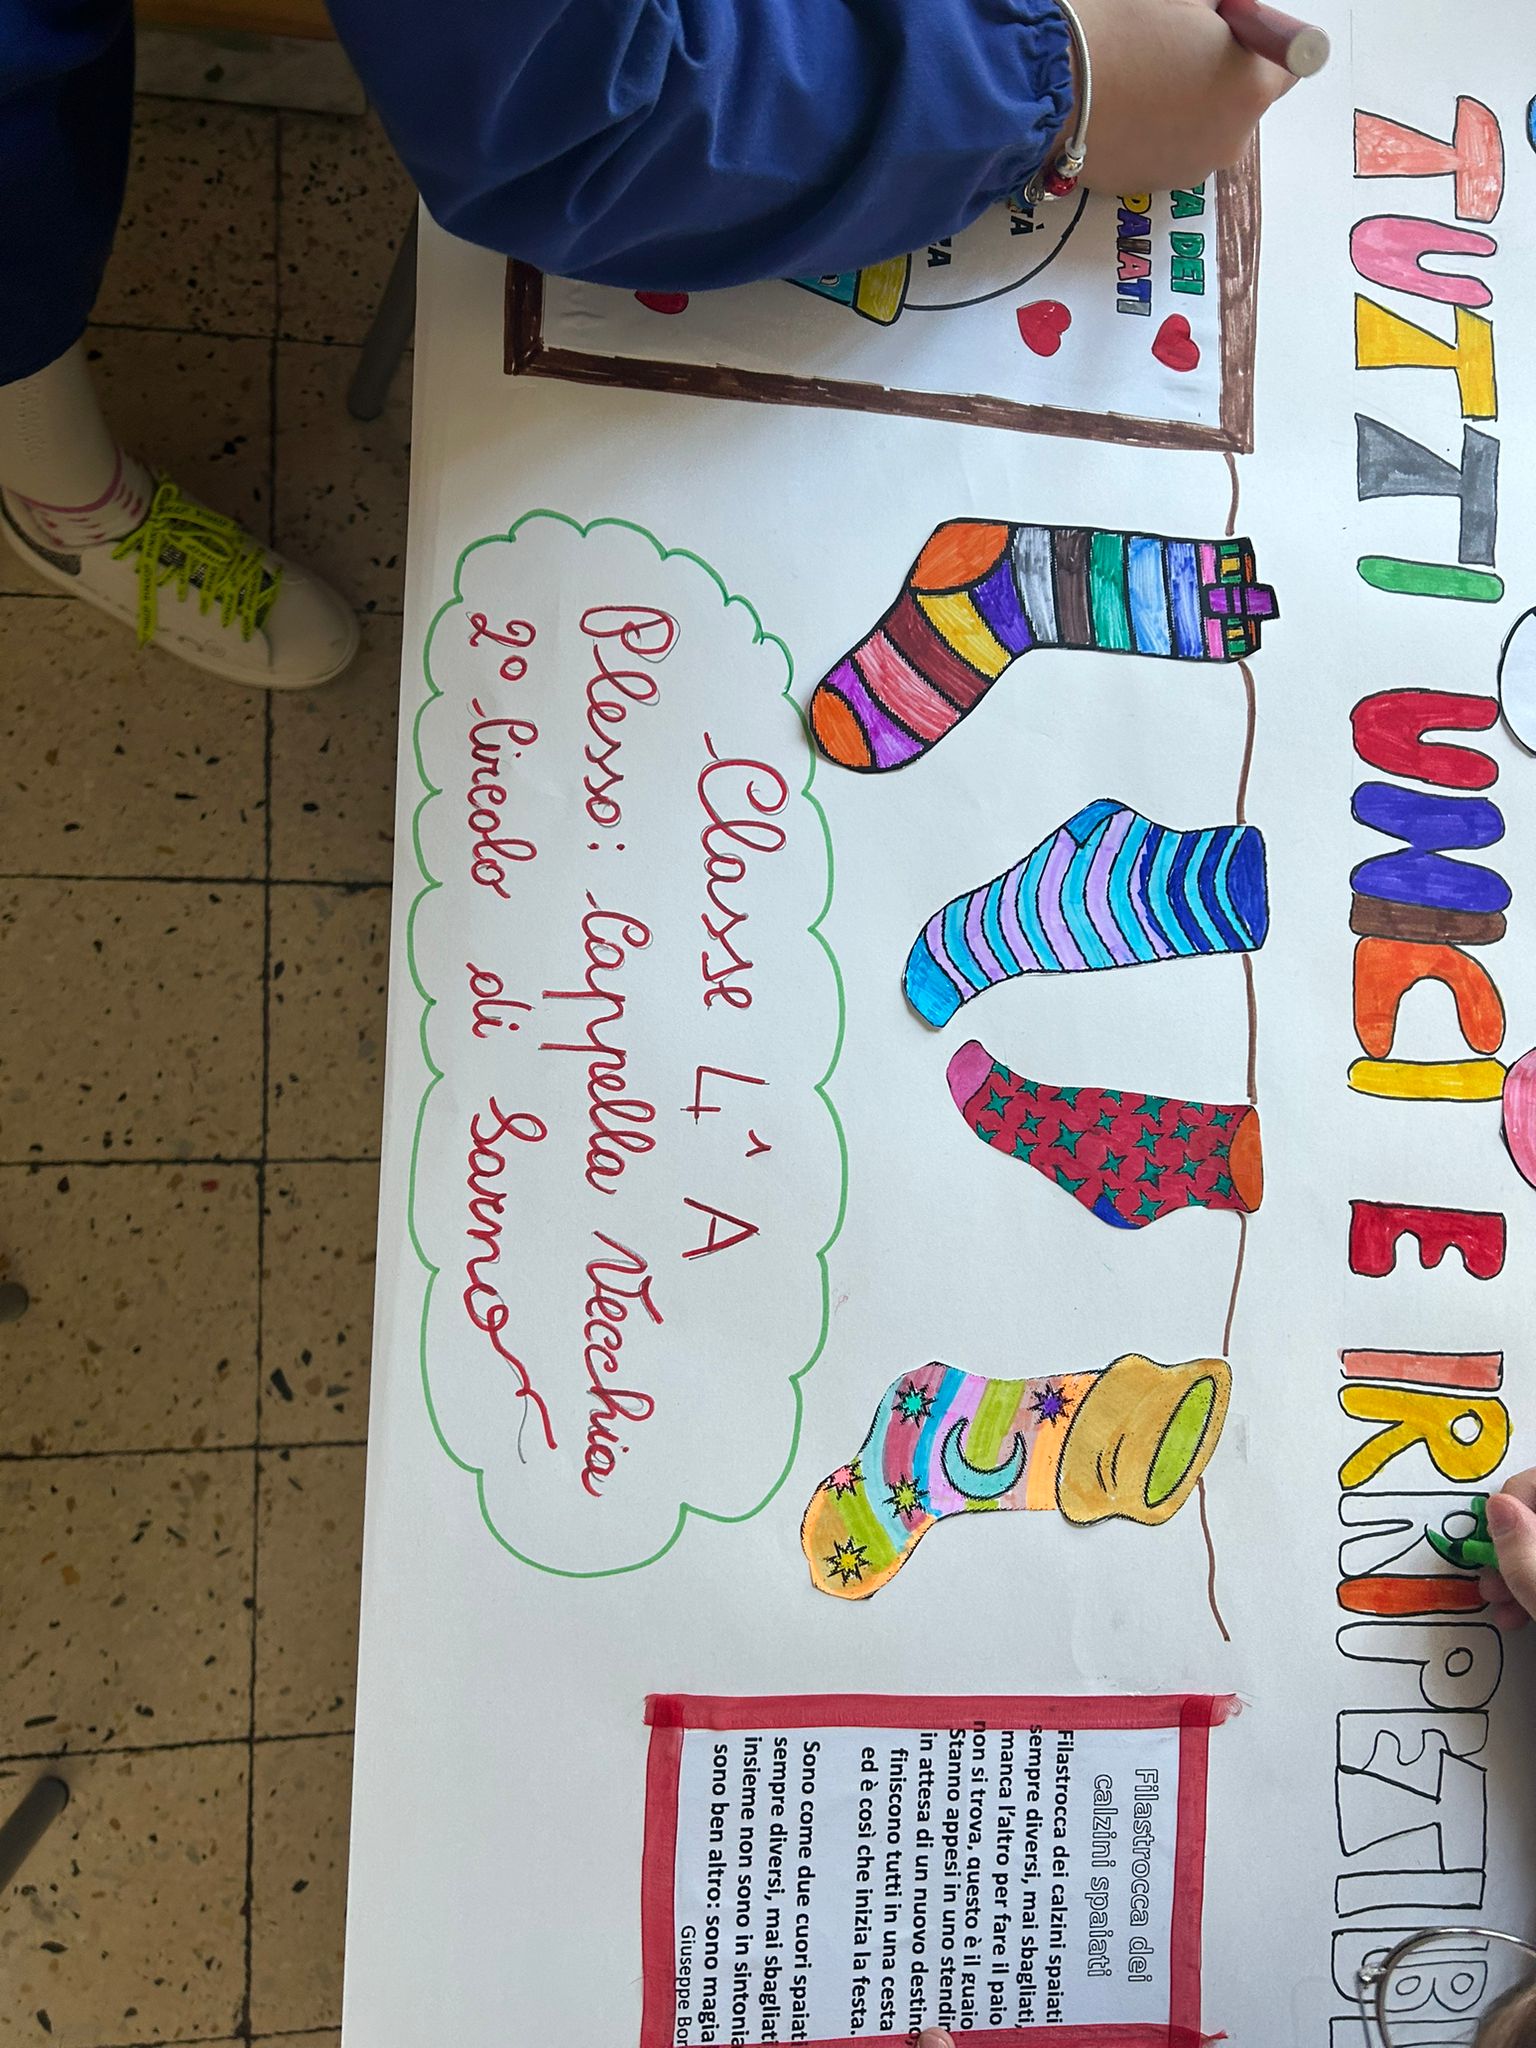 TUTTI UNICI E IRRIPETIB
TA DEI
PAIATI
TÀ
ZA
Classe 4^ A
Plesso: Cappella Vecchia
2° Circolo di Sarno
Filastrocca dei
calzini spaiati
Filastrocca dei calzini spaiati
sempre diversi, mai sbagliati,
manca l'altro per fare il paio
non si trova, questo è il guaio
Stanno appesi in uno stendin
in attesa di un nuovo destino,
finiscono tutti in una cesta
ed è così che inizia la festa.
Sono come due cuori spaiati
sempre diversi, mai sbagliati
insieme non sono in sintonia
sono ben altro: sono magia
Giuseppe Bor